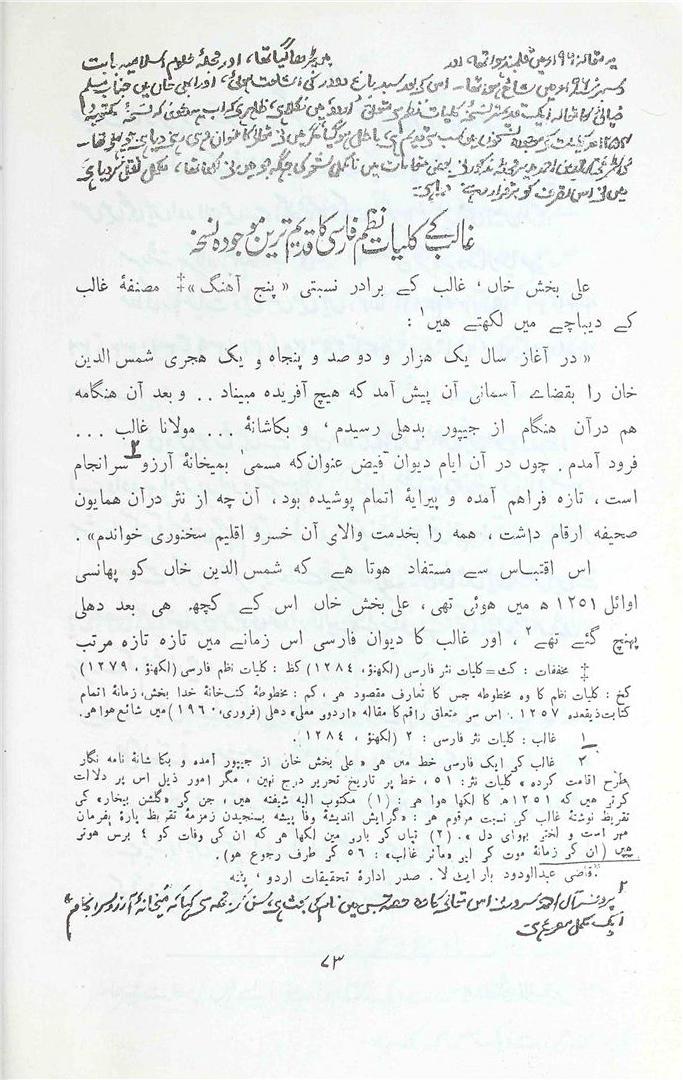 یہ مقالہ ۱۹۶۰ء میں قلمبند ہوا تھا، اور میں پڑھا گیا تھا، اور مجلۂ علوم اسلامیہ بابت
دسمبر میں شائع ہوا تھا۔ اس کے بعد سبد باغ دودر کی اشاعت ہوئی، اور
ضیائی کا مقالہ ایک قدیم تر نسخۂ کلیات نظم سے متعلق اردو میں نکلا
میں نے اس کو برقرار رکھا ہے۔
غالب کے کلیات نظم فارسی کا قدیم ترین موجودہ نسخہ
علی بخش خاں، غالب کے برادر نسبتی «پنج آهنگ»‡ مصنفۂ غالب
کے دیباچے میں لکھتے ھیں۱ :
«در آغاز سال یک هزار و دو صد و پنجاه و یک هجری شمس الدین
خان را بقضاے آسمانی آن پیش آمد که هیچ آفریده مبیناد .. و بعد آن هنگامه
هم درآن هنگام از جیپور بدهلی رسیدم، و بکاشانۂ ... مولانا غالب ...
فرود آمدم. چوں در آن ایام دیوان فیض عنوان که مسمی بمیخانۂ آرزو ۲ سرانجام
است، تازه فراهم آمده و پیرایۂ اتمام پوشیده بود، آن چه از نثر درآن همایون
صحیفه ارقام داشت، همه را بخدمت والای آن خسرو اقلیم سخنوری خواندم».
اس اقتبـاس سے مستفاد هوتا هے که شمس الدین خاں کو پھانسی
اوائل ۱۲۵۱ ھ میں هوئی تھی، علی بخش خاں اس کے کچھ هی بعد دهلی
پہنچ گئے تھے۲، اور غالب کا دیوان فارسی اس زمانے میں تازہ تازہ مرتب
‡ مخففات : کث = کلیات نثر فارسی (لکھنؤ، ۱۲۸۴) کظ : کلیات نظم فارسی (لکھنؤ، ۱۲۷۹)
کخ : کلیات نظم کا وہ مخطوطہ جس کا تعارف مقصود هے، کم : مخطوطۂ کتب خانۂ خدا بخش، زمانۂ اتمام
کتابت ذیقعده ۱۲۵۷. اس سے متعلق راقم کا مقاله «اردوی معلی» دهلی (فروری، ۱۹۶۰) میں شائع هوا هے.
۱ غالب : کلیات نثر فارسی : ۲ (لکھنؤ، ۱۲۸۴).
۲ غالب کی ایک فارسی خط میں هے «علی بخش خان از جیپور آمده و بکا شانۂ نامه نگار
طرح اقامت کرده» کلیات نثر: ۵۱، خط پر تاریخ تحریر درج نہیں، مگر امور ذیل اس پر دلالت
کرتے هیں که ۱۲۵۱ھ کا لکھا هوا هے : (۱) مکتوب الیه شیفته هیں، جن کی «گلشن بیخار» کی
تقریظ نوشتۂ غالب کی نسبت مرقوم هے : «گرایش اندیشۂ وفا پیشه بسنجیدن زمزمۂ تقریظ پارۂ بفرمان
مهر است و لختے بهوای دل». (۲) تپاں کی بارے میں لکھا هے که ان کی وفات کو ۴ برس هوئے
هیں (ان کے زمانۂ موت کے لیے «مآثر غالب» : ۵۶ کی طرف رجوع هو).
قاضی عبدالودود بار ایٹ لا. صدر ادارۂ تحقیقات اردو، پٹنه
۲ پروفیسر آل احمد سرور نے اس مقالے کا وہ حصہ جس میں نام کی بحث ہے، سن کر مجھ سے کہا کہ میخانۂ آرزو سرانجام
ایک مکمل مصرع ہے
۷۳